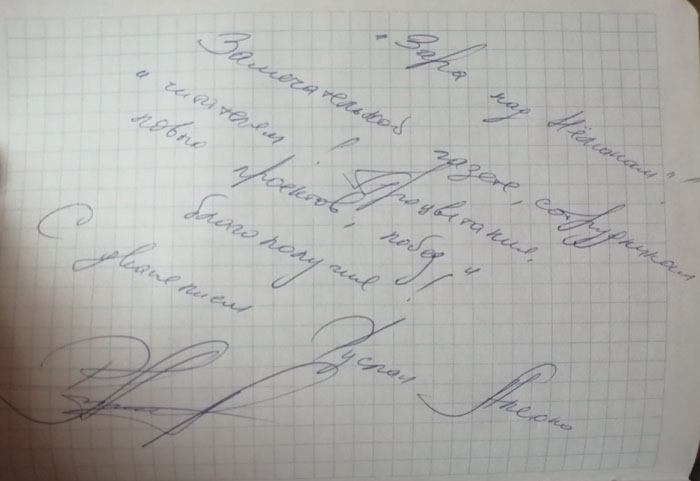 "Зара над Нёманам"!
Замечательной газете, сотрудникам
и читателям! Процветания,
новых проектов, побед и
благополучия!
С уважением
Руслан Алехно